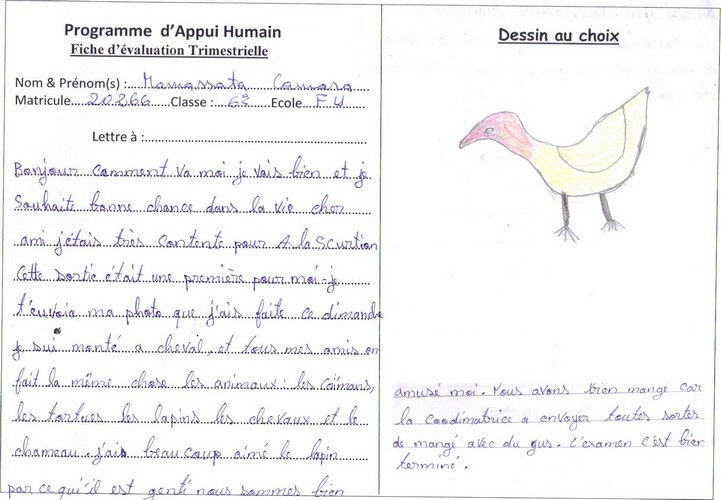 Programme d'Appui Humain
Fiche d'évaluation Trimestrielle
Nom & Prénom(s) : Mamassata Camara
Matricule 20266 Classe : 63 Ecole F U
Lettre à :
Bonjour comment va moi je vais bien et je
Souhaite bonne chance dans la vie cher
ami j'étais très contente pour A la Scurtion
Cette sortie était une première pour moi je
t'envoie ma photo que j'ais faite ce dimande
je sui monté a cheval, et tous mes amis on
fait la même chose les animaux : les Caïmans,
les tortues les lapins les chevaux et le
chameau. j'ais beaucoup aimé le lapin
par ce qu'il est genti nous sommes bien
Dessin au choix
amusé moi. Nous avons bien mangé car
la Coodimatrice a envoyer toutes sortes
de mangé avec du gus. L'examen C'est bien
terminé.